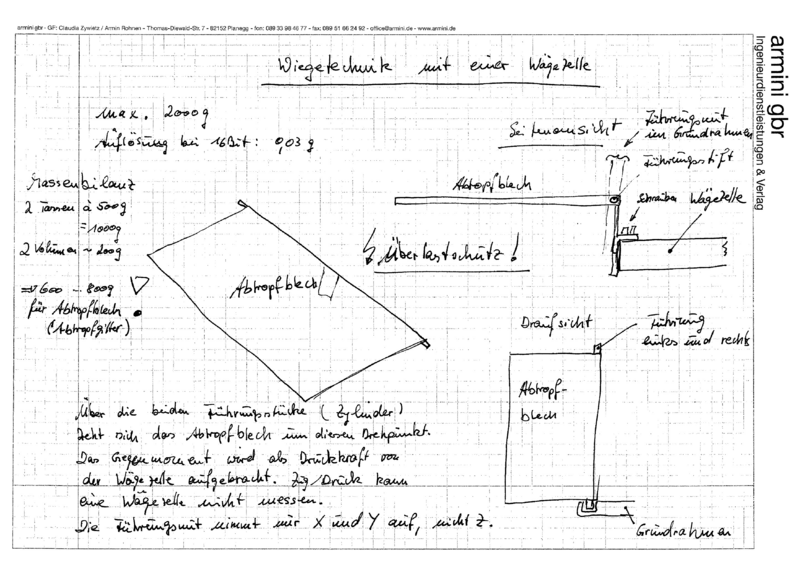 armini gbr - GF: Claudia Zywietz / Armin Rohnen - Thomas-Diewald-Str. 7 - 82152 Planegg - fon: 089 33 98 46 77 - fax: 089 51 66 24 92 - office@armini.de - www.armini.de
armini gbr
Ingenieurdienstleistungen & Verlag
Wiegetechnik mit einer Wägezelle
max. 2000g
Auflösung bei 16Bit: 0,03 g
Massenbilanz
2 Tassen à 500g
= 1000g
2 Volumen ~ 200g
=> 600 - 800g
für Abtropfblech
(Abtropfgitter)
Abtropfblech
Seitenansicht
Führungsnut
im Grundrahmen
Führungsstift
Abtropfblech
Schrauben
Wägezelle
Überlastschutz!
Draufsicht
Führung
links und rechts
Abtropf-
blech
Grundrahmen
Über die beiden Führungsstücke (Zylinder)
dreht sich das Abtropfblech um diesen Drehpunkt.
Das Gegenmoment wird als Druckkraft von
der Wägezelle aufgebracht. Zug/Druck kann
eine Wägezelle nicht messen.
Die Führungsnut nimmt nur X und Y auf, nicht Z.